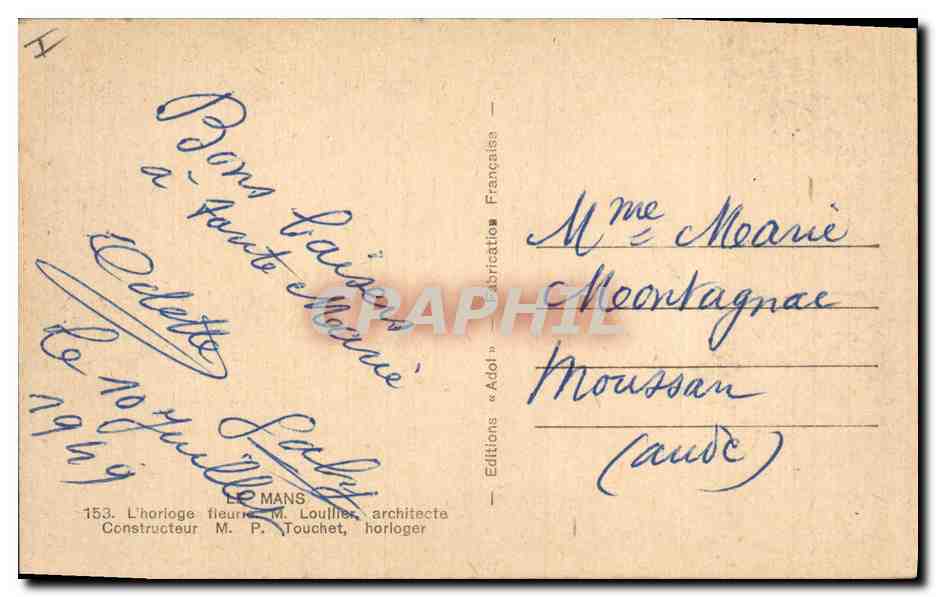 H
Bons baisers
à tante Marie
Odette
Gaby
Le 10 Juillet
1949
LE MANS
153. L'horloge fleurie. M. Loullier, architecte
Constructeur M. P. Touchet, horloger
— Editions « Adol » — Fabrication Française —
Mme Marie
Montagnac
Moussan
(aude)
CPAPHIL